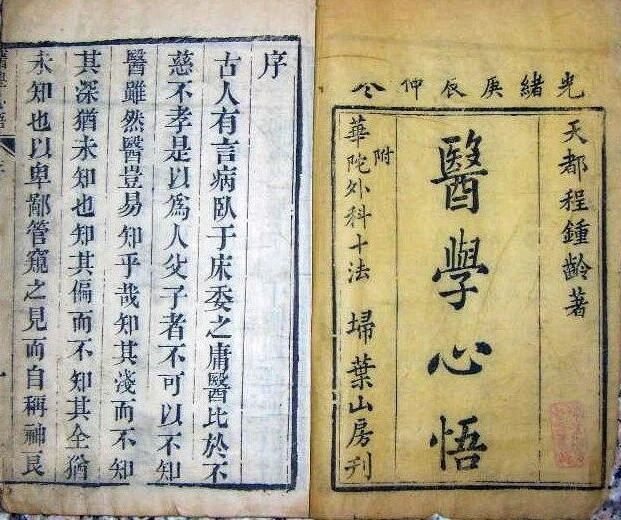 光緒庚辰仲
天都程鍾齡著
醫學心悟
附華陀外科十法
埽葉山房刋
序
古人有言病臥于床委之庸醫比於不
慈不孝是以爲人父子者不可以不知
醫雖然醫豈易知乎哉知其淺而不知
其深猶未知也知其偏而不知其全猶
未知也以卑鄙管窺之見而自稱神良